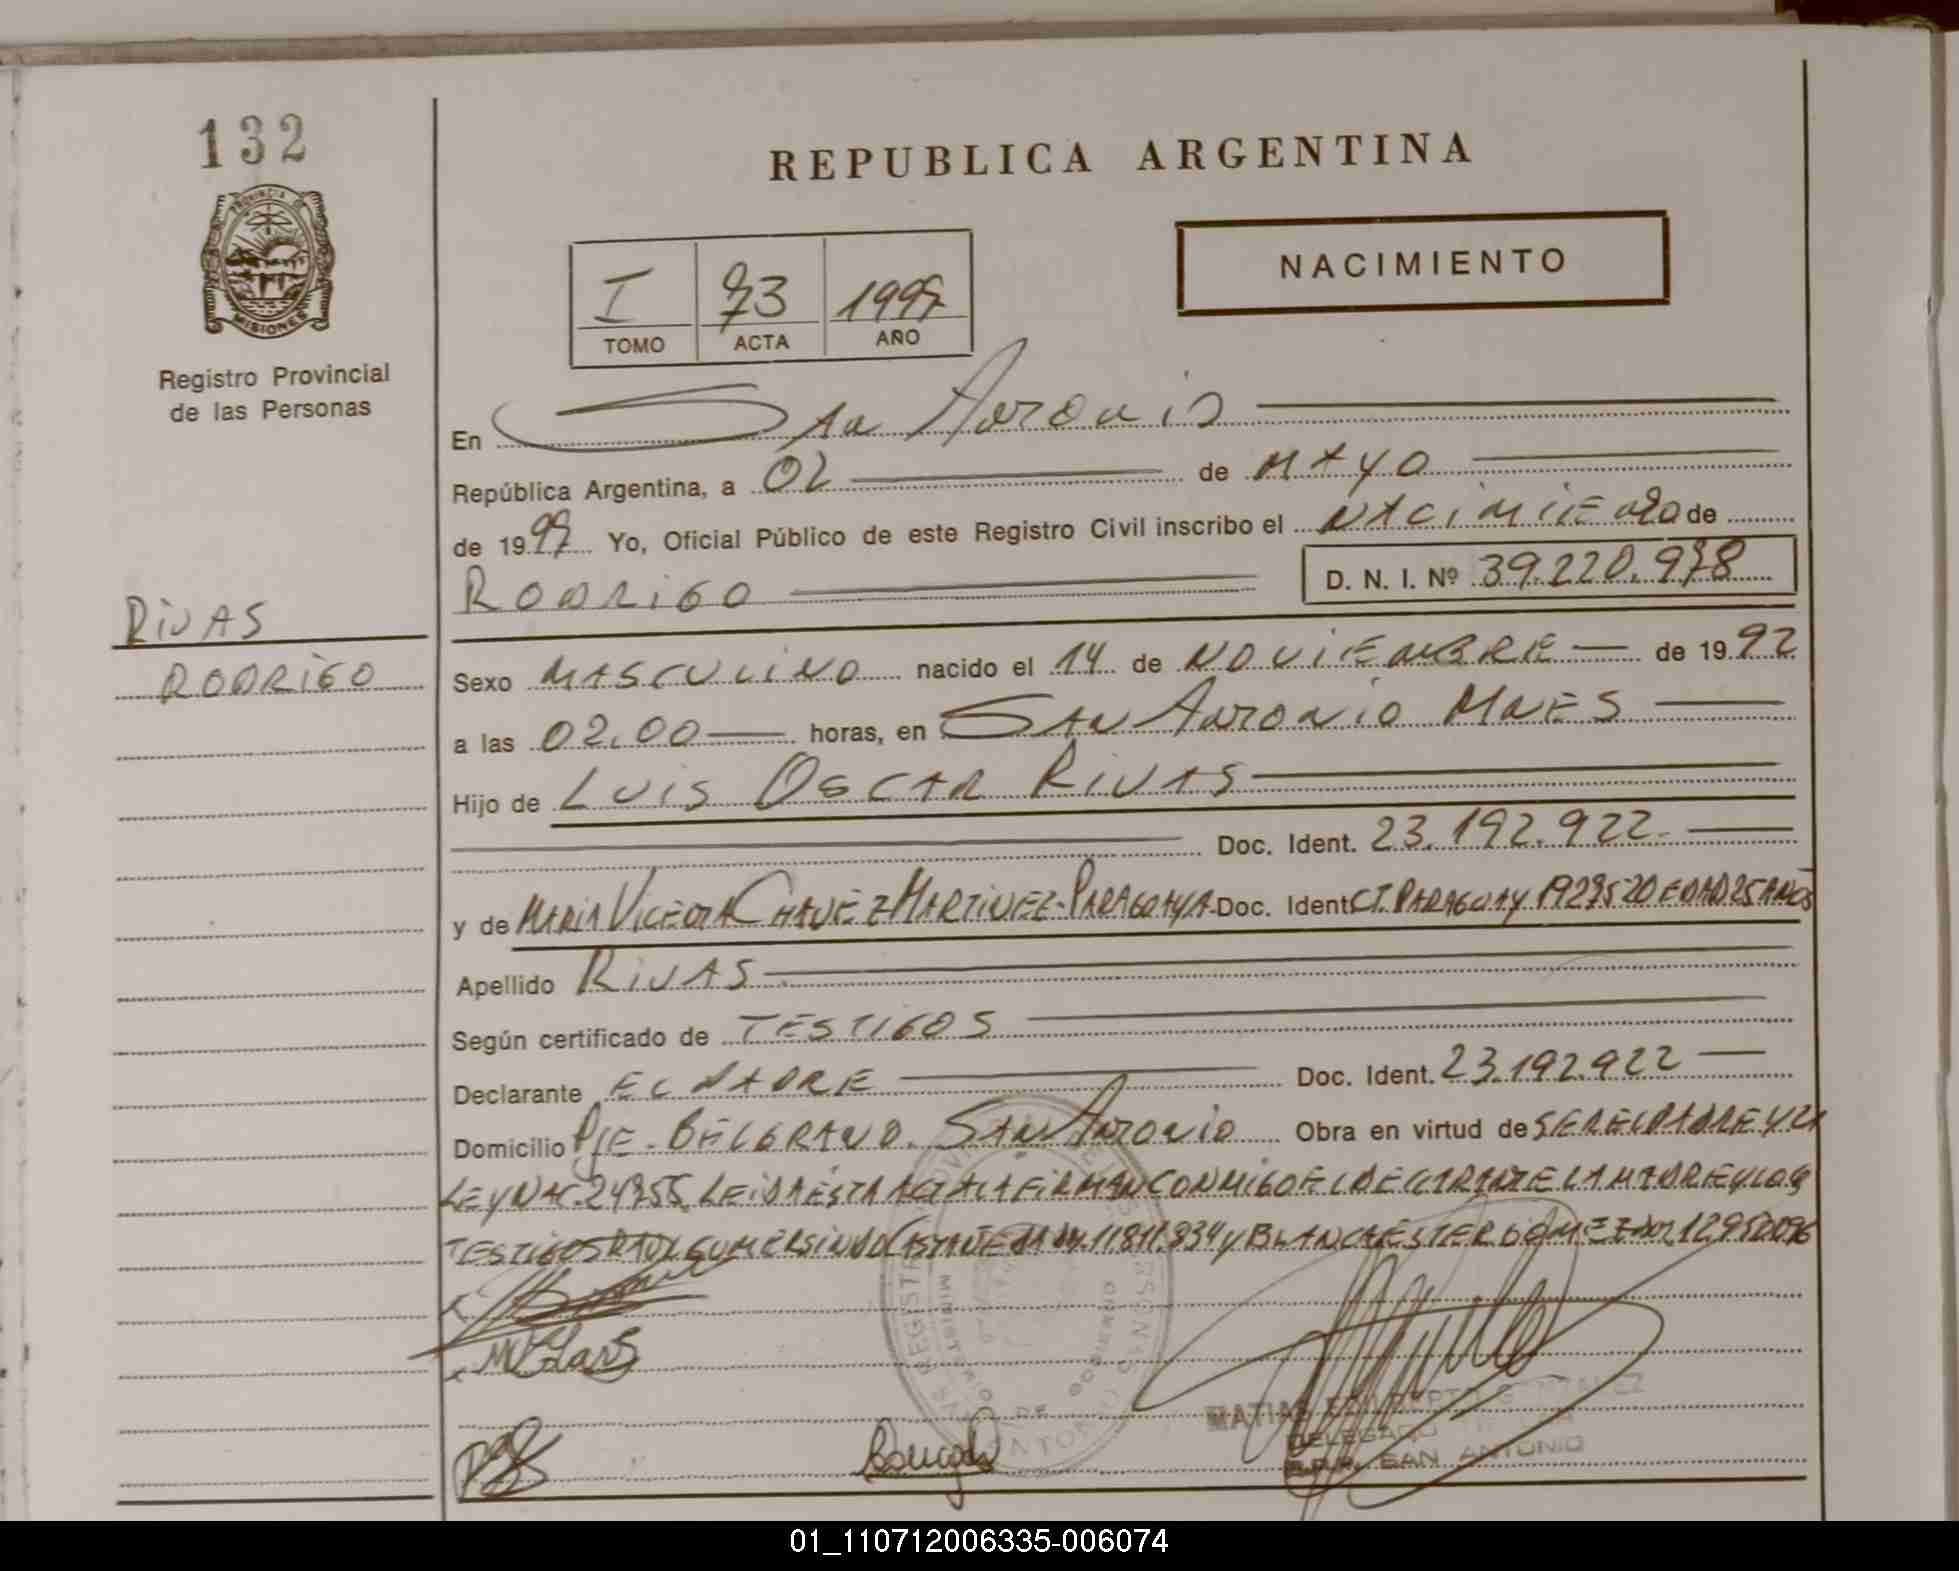 132
PROVINCIA DE
MISIONES
Registro Provincial
de las Personas
RIVAS
RODRIGO
REPUBLICA ARGENTINA
I 73 1997
TOMO ACTA AÑO
NACIMIENTO
En San Antonio
República Argentina, a 02 de MAYO
de 1997 Yo, Oficial Público de este Registro Civil inscribo el NACIMIENTO de
RODRIGO D. N. I. Nº 39.220.978
Sexo MASCULINO nacido el 14 de NOVIEMBRE de 1992
a las 02.00 horas, en SAN ANTONIO MNES
Hijo de LUIS OSCAR RIVAS
Doc. Ident. 23.192.922.
y de MARIA VICENTA CHAVEZ MARTINEZ-PARAGUAYA Doc. Ident C.I. PARAGUAY 1927520 EDAD 25 AÑOS
Apellido RIVAS
Según certificado de TESTIGOS
Declarante EL PADRE Doc. Ident. 23.192.922
Domicilio PJE. BELGRANO. SAN ANTONIO Obra en virtud de SER EL PADRE Y LA
LEY NAC. 24755. LEIDA ESTA ACTA LA FIRMAN CONMIGO EL DECLARANTE LA MADRE Y LOS
TESTIGOS RAUL GUMERSINDO CASTAÑEDA 11.811.934 Y BLANCA ESTER GOMEZ 12.950096
MATIAS EDILBERTO GONZALEZ
DELEGADO
R.P.P. SAN ANTONIO
01_110712006335-006074